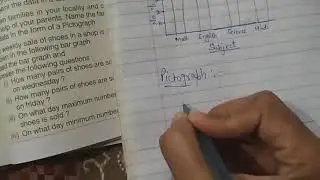 families in your locality and
help of your parents. Name the
in the form of a Pictograph
weekly sale of shoes in a shop
in the following bar
the bar graph and
the following questions :
(i) How many pairs of shoes are
on wednesday ?
(ii) How many pairs of shoes are
on friday ?
(iii) On what day maximum number
shoes is sold ?
(iv) On what day minimum
English Science Hindi
Subject
Pictograph :-